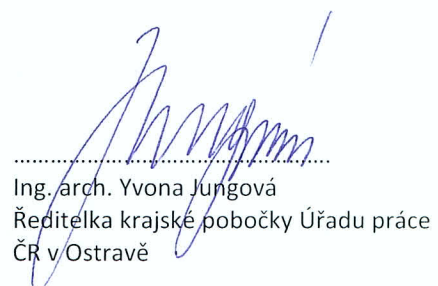 ........................................................
Ing. arch. Yvona Jungová
Ředitelka krajské pobočky Úřadu práce
ČR v Ostravě